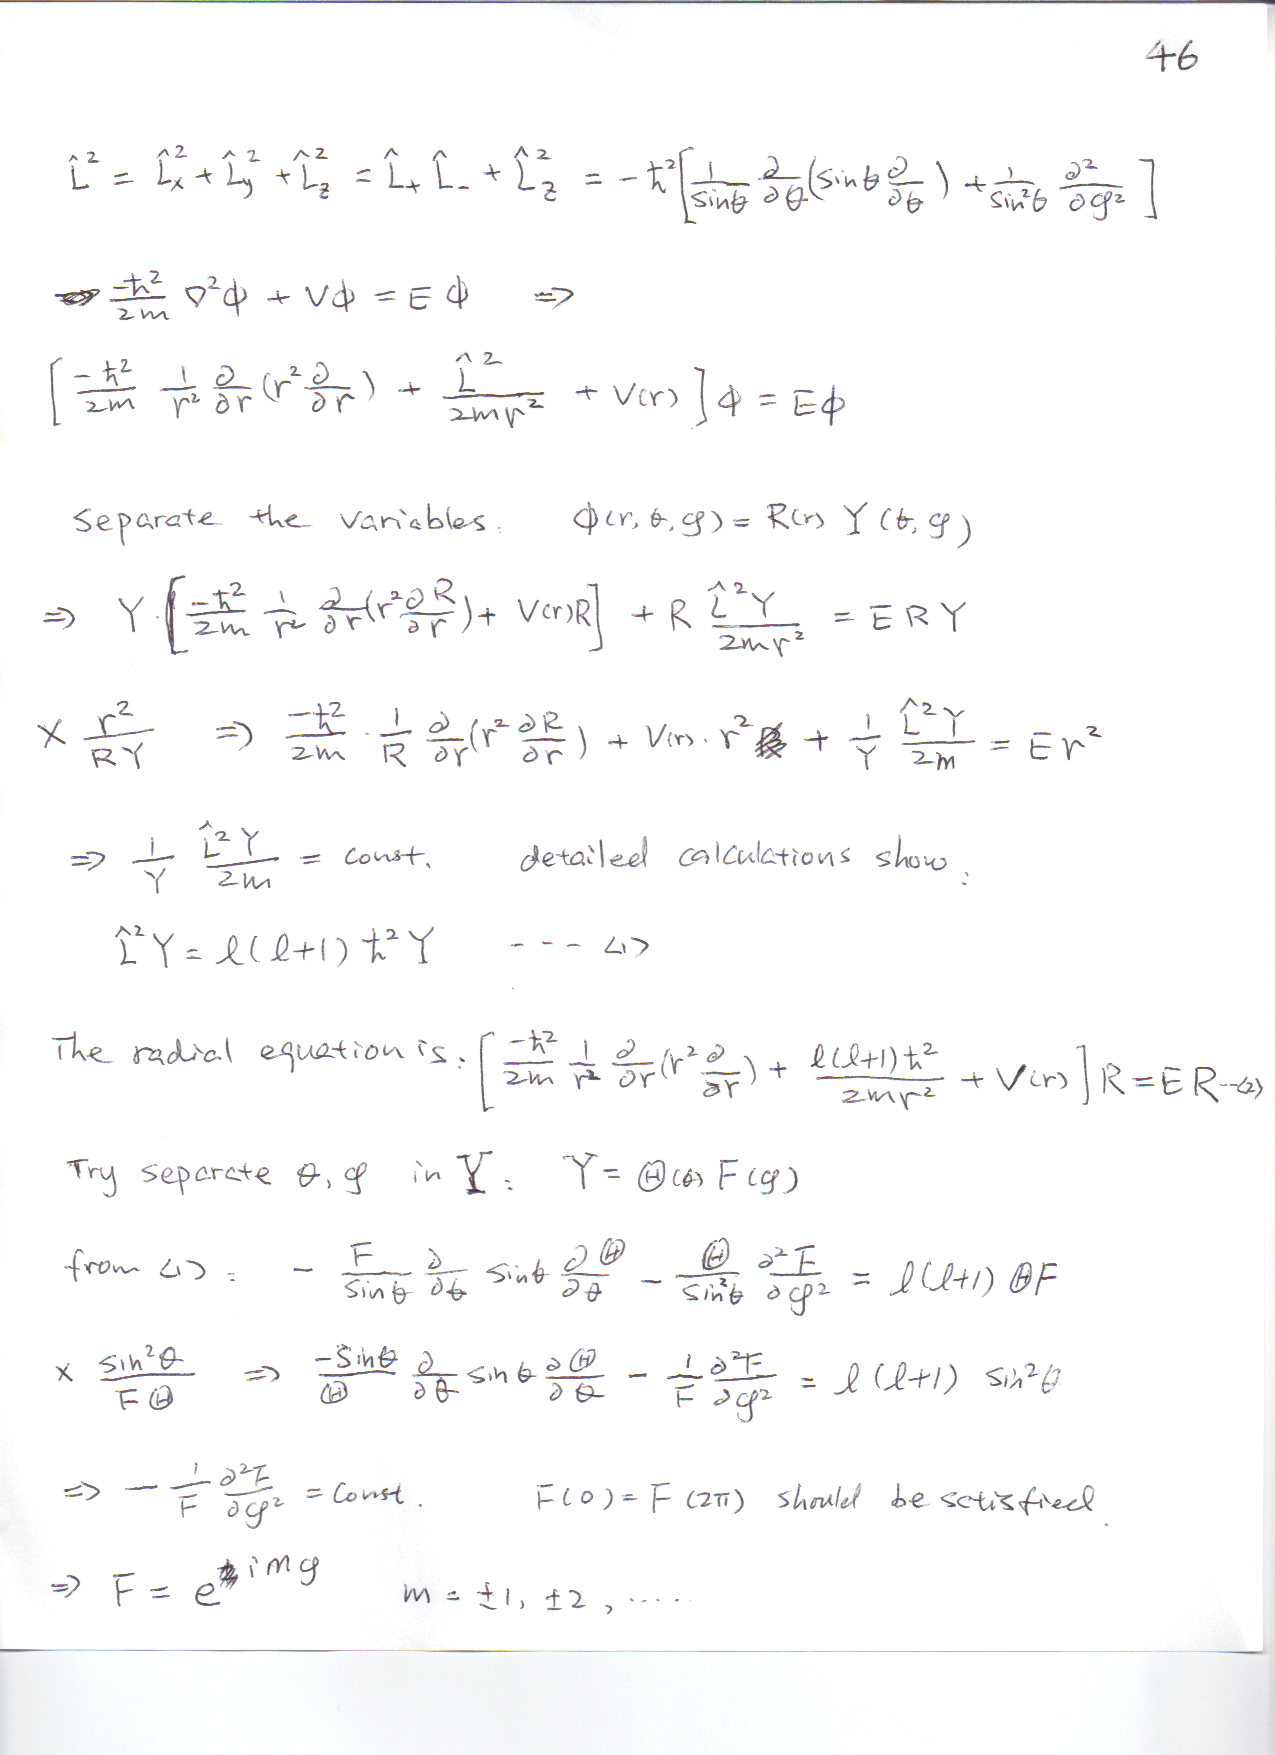 46
L̂² = L̂x² + L̂y² + L̂z² = L̂₊ L̂₋ + L̂z² = -ħ²[1/sinθ ∂/∂θ(sinθ ∂/∂θ) + 1/sin²θ ∂²/∂φ²]
-ħ²/2m ∇²ϕ + Vϕ = Eϕ ⇒
[-ħ²/2m 1/r² ∂/∂r (r² ∂/∂r) + L̂²/2mr² + V(r)]ϕ = Eϕ
Separate the variables. ϕ(r,θ,φ) = R(r) Y(θ,φ)
⇒ Y·[-ħ²/2m 1/r² ∂/∂r(r² ∂R/∂r) + V(r)R] + R L̂²Y/2mr² = ERY
× r²/RY ⇒ -ħ²/2m · 1/R ∂/∂r(r² ∂R/∂r) + V(r)·r² + 1/Y L̂²Y/2m = Er²
⇒ 1/Y L̂²Y/2m = const. detailed calculations show:
L̂²Y = ℓ(ℓ+1)ħ²Y --- <1>
The radial equation is: [-ħ²/2m 1/r² ∂/∂r(r² ∂/∂r) + ℓ(ℓ+1)ħ²/2mr² + V(r)]R = ER --<2>
Try separate θ, φ in Y: Y = Θ(θ) F(φ)
from <1>: - F/sinθ ∂/∂θ sinθ ∂Θ/∂θ - Θ/sin²θ ∂²F/∂φ² = ℓ(ℓ+1) ΘF
× sin²θ/FΘ ⇒ -sinθ/Θ ∂/∂θ sinθ ∂Θ/∂θ - 1/F ∂²F/∂φ² = ℓ(ℓ+1) sin²θ
⇒ - 1/F ∂²F/∂φ² = const. F(0) = F(2π) should be satisfied.
⇒ F = e^{imφ} m = ±1, ±2, .....